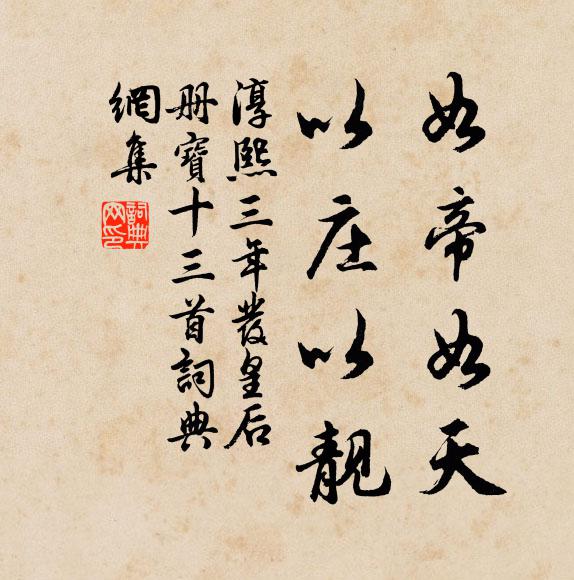 如帝如天
以庄以靚
淳熙三年發皇后
册寶十三首詞典
網集
詞典網印